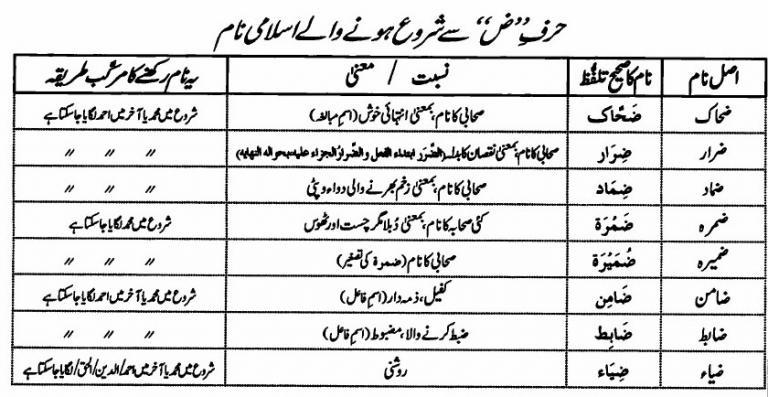 حرفِ ”ض“ سے شروع ہونے والے اسلامی نام
اصل نام نام کا صحیح تلفظ نسبت / معنیٰ یہ نام رکھنے کا مرکب طریقہ
ضحاک ضَحَّاک صحابی کا نام، بمعنیٰ انتہائی خوش (اسمِ مبالغہ) شروع میں محمد یا آخر میں احمد لگایا جاسکتا ہے
ضرار ضِرَار صحابی کا نام، بمعنیٰ نقصان کا بدلہ (الضَّرَر ابتداء الفعل والضِّرارُ الجزاء علیہ بحوالہ النہایہ) 〃 〃 〃
ضماد ضِمَاد صحابی کا نام، بمعنیٰ زخم بھرنے والی دواء و پٹی 〃 〃 〃
ضمرہ ضَمْرَة کئی صحابہ کا نام، بمعنیٰ دُبلا مگر چست اور ٹھوس شروع میں محمد لگایا جاسکتا ہے
ضمیرہ ضُمَيْرَة صحابی کا نام (ضمرة کی تصغیر) 〃 〃 〃
ضامن ضَامِن کفیل، ذمہ دار (اسمِ فاعل) شروع میں محمد یا آخر میں احمد لگایا جاسکتا ہے
ضابط ضَابِط ضبط کرنے والا، مضبوط (اسمِ فاعل) 〃 〃 〃
ضیاء ضِیَاء روشنی شروع میں محمد یا آخر میں احمد/الدین/الحق/لگایا جاسکتا ہے